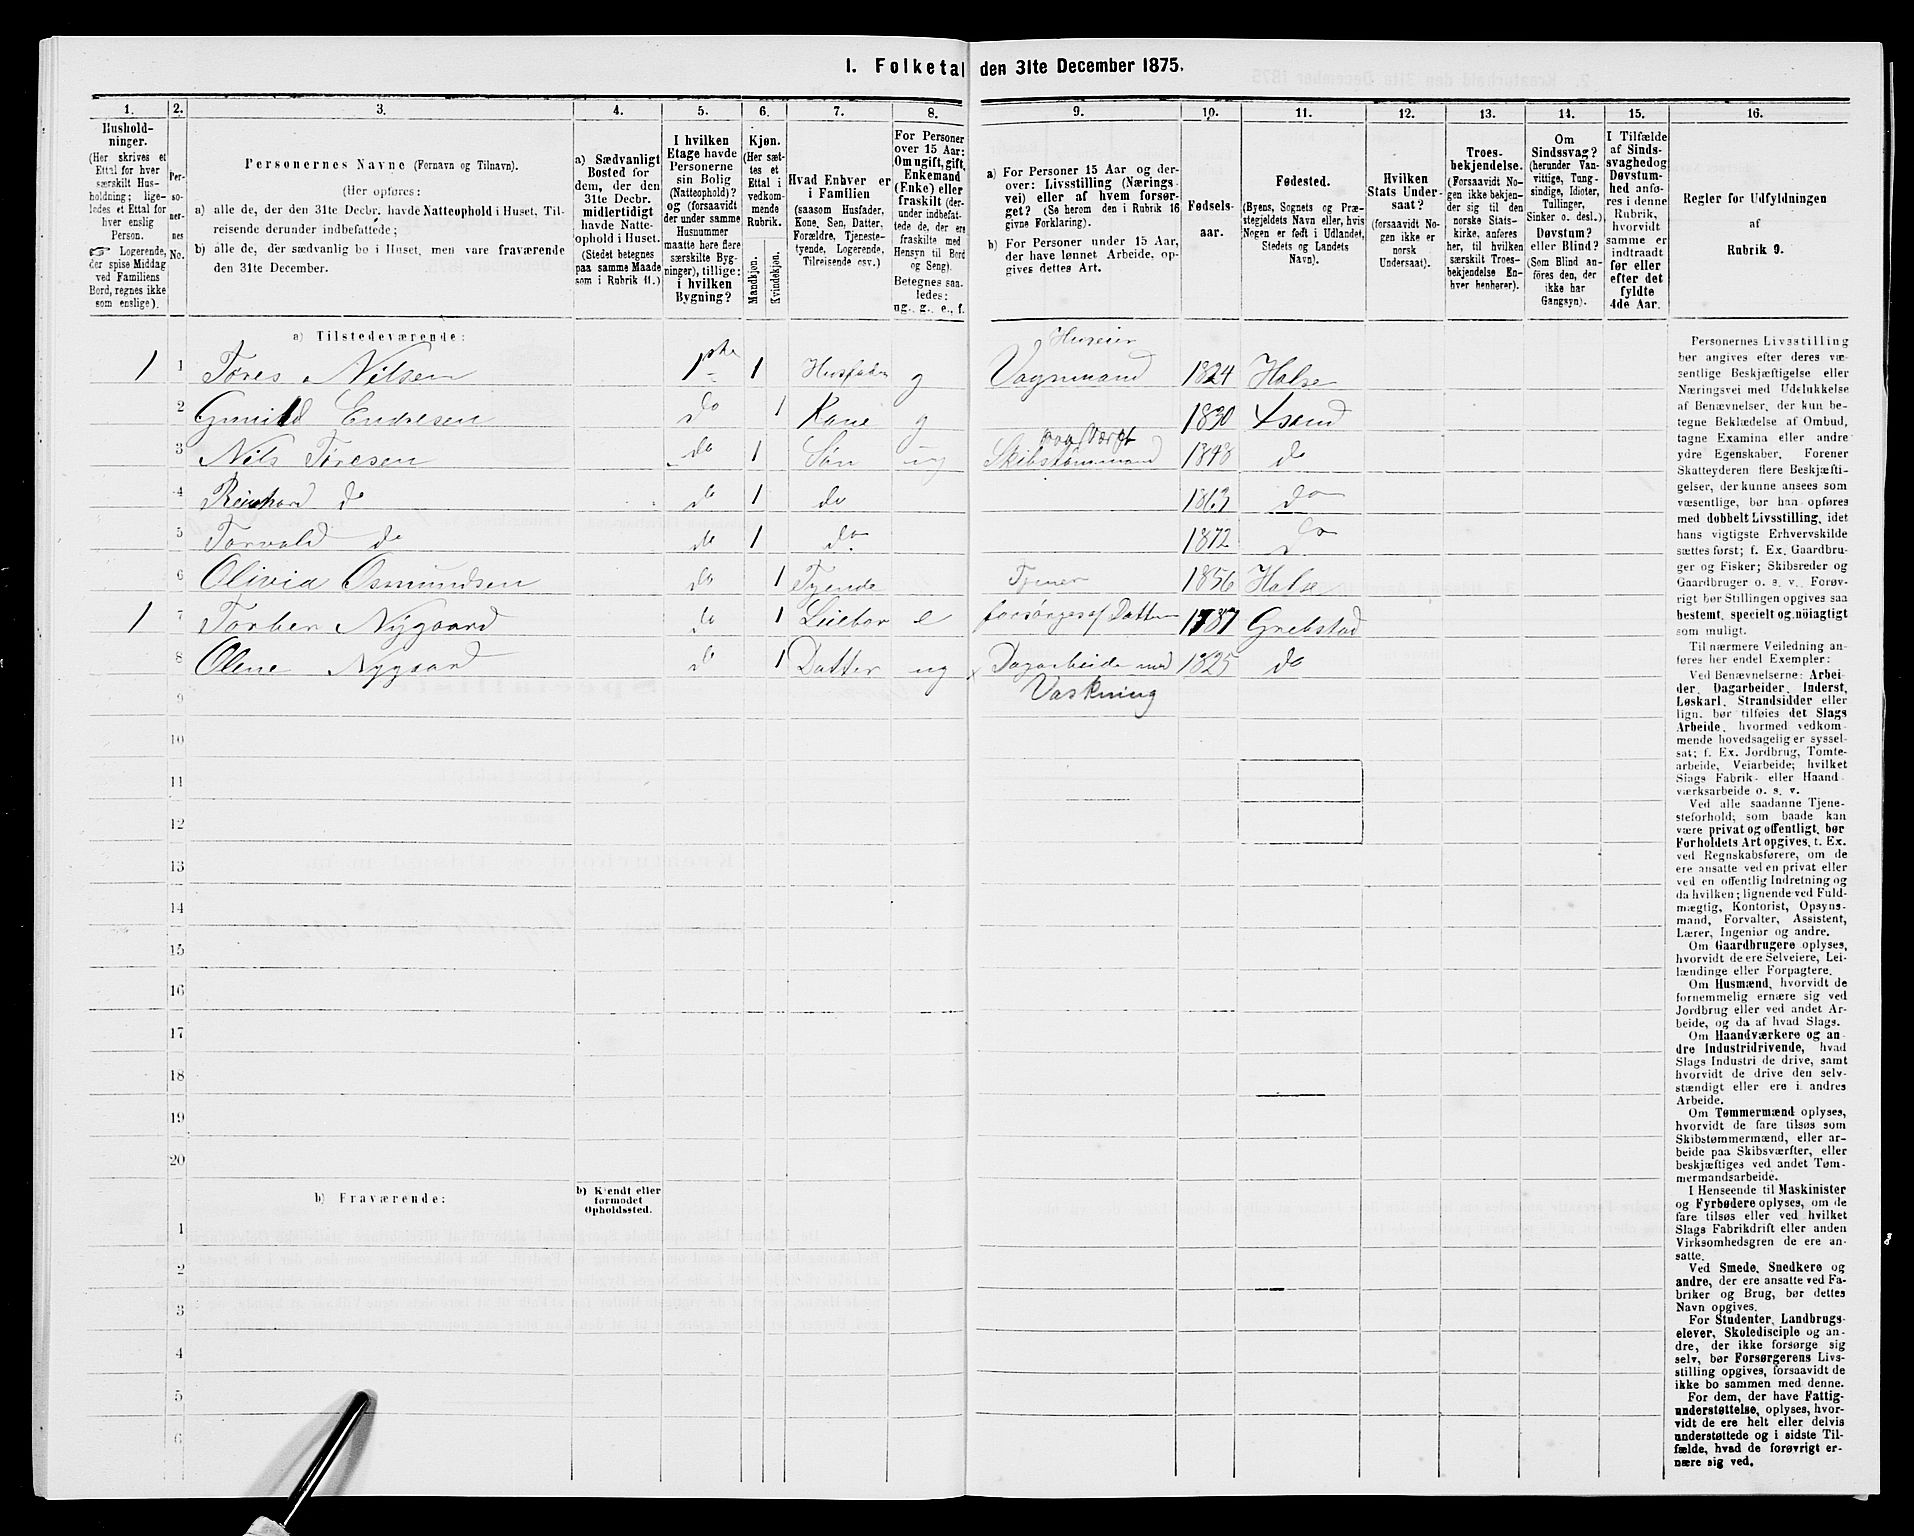 1. Folketal den 31te December 1875.
1.
Hushold-
ninger.
(Her skrives et
Ettal for hver
særskilt Hus-
holdning; lige-
ledes et Ettal for
hver enslig
Person.
☞ Logerende,
der spise Middag
ved Familiens
Bord, regnes ikke
som enslige).
2.
Per-
so-
ner-
nes
No.
3.
Personernes Navne (Fornavn og Tilnavn).
(Her opføres:
a) alle de, der den 31te Decbr. havde Natteophold i Huset, Til-
reisende derunder indbefattede;
b) alle de, der sædvanlig bo i Huset, men vare fraværende
den 31te December.
4.
a) Sædvanligt
Bosted for
dem, der den
31te Decbr.
midlertidigt
havde Natte-
ophold i Huset.
(Stedet betegnes
paa samme Maade
som i Rubrik 11.)
5.
I hvilken
Etage havde
Personerne
sin Bolig
(Natteophold)?
og (forsaavidt
der under samme
Husnummer
maatte høre flere
særskilte Byg-
ninger), tillige:
i hvilken
Bygning?
6.
Kjøn.
(Her sæt-
tes et
Ettal i
vedkom-
mende
Rubrik.
Mandkjøn.
Kvindekjøn.
7.
Hvad Enhver er
i Familien
(saasom Husfader,
Kone, Søn, Datter,
Forældre, Tjeneste-
tyende, Logerende,
Tilreisende osv.)
8.
For Personer
over 15 Aar:
Om ugift, gift,
Enkemand
(Enke) eller
fraskilt (der-
under indbefat-
tede de, der ere
fraskilte med
Hensyn til Bord
og Seng).
Betegnes saa-
ledes:
ug., g., e., f.
9.
a) For Personer 15 Aar og der-
over: Livsstilling (Nærings-
vei) eller af hvem forsør-
get? (Se herom den i Rubrik 16
givne Forklaring).
b) For Personer under 15 Aar,
der have lønnet Arbeide, op-
gives dettes Art.
10.
Fødsels-
aar.
11.
Fødested.
(Byens, Sognets og Præ-
stegjeldets Navn eller, hvis
Nogen er født i Udlandet,
Stedets og Landets
Navn).
12.
Hvilken
Stats Under-
saat?
(forsaavidt No-
gen ikke er
norsk
Undersaat).
13.
Troes-
bekjendelse.
(Forsaavidt No-
gen ikke bekjen-
der sig til den
norske Stats-
kirke, anføres
her, til hvilken
særskilt Troes-
bekjendelse En-
hver henhører).
14.
Om
Sindssvag?
(herunder Van-
vittige, Tung-
sindige, Idioter,
Tullinger,
Sinker o. desl.)
Døvstum?
eller Blind?
(Som Blind an-
føres den, der
ikke har
Gangsyn).
15.
I Tilfælde
af Sinds-
svaghed og
Døvstum-
hed anfø-
res i denne
Rubrik,
hvorvidt
samme er
indtraadt
før eller
efter det
fyldte
4de Aar.
16.
Regler for Udfyldningen
af
Rubrik 9.
a) Tilstedeværende:
Huseier
1 1 Tøres Nilsen 1ste 1 Husfader g Vognmand 1824 Halse
2 Gunild Endresen do 1 Kone g 1830 Xsand
paa Værft
3 Nils Tøresen do 1 Søn ug Skibstømmermand 1848 do
4 Reinhard do do 1 do 1863 do
5 Torvald do do 1 do 1872 do
6 Olivia Osmundsen do 1 Tyende Tjener 1856 Halse
1 7 Torber Nygaard do 1 Leiebor e forsørges af Datter 1787 Grebstad
8 Olene Nygaard do 1 Datter ug Dagarbeide med 1825 do
9 Vaskning
10
11
12
13
14
15
16
17
18
19
20
b) Fraværende:
b) Kjendt eller
formodet
Opholdssted.
1
2
3
4
5
6
Personernes Livsstilling
bør angives efter deres væ-
sentlige Beskjæftigelse eller
Næringsvei med Udelukkelse
af Benævnelser, der kun be-
tegne Beklædelse af Ombud,
tagne Examina eller andre
ydre Egenskaber. Forener
Skatteyderen flere Beskjæfti-
gelser, der kunne ansees som
væsentlige, bør han opføres
med dobbelt Livsstilling, idet
hans vigtigste Erhvervskilde
sættes først; f. Ex. Gaardbru-
ger og Fisker; Skibsreder og
Gaardbruger o. s. v. Forøv-
rigt bør Stillingen opgives saa
bestemt, specielt og nøiagtigt
som muligt.
Til nærmere Veiledning an-
føres her endel Exempler:
Ved Benævnelserne: Arbei-
der, Dagarbeider, Inderst,
Løskarl, Strandsidder eller
lign. bør tilføies det Slags
Arbeide, hvormed vedkom-
mende hovedsagelig er syssel-
sat; f. Ex. Jordbrug, Tomte-
arbeide, Veiarbeide; hvilket
Slags Fabrik- eller Haand-
værksarbeide o. s. v.
Ved alle saadanne Tjene-
steforhold, som baade kan
være privat og offentligt, bør
Forholdets Art opgives, f. Ex.
ved Regnskabsførere, om de
ere ansatte ved en privat eller
ved en offentlig Indretning og
da hvilken; lignende ved Fuld-
mægtig, Kontorist, Opsyns-
mand, Forvalter, Assistent,
Lærer, Ingeniør og andre.
Om Gaardbrugere oplyses,
hvorvidt de ere Selveiere, Lei-
lændinge eller Forpagtere.
Om Husmænd, hvorvidt de
fornemmelig ernære sig ved
Jordbrug eller ved andet Ar-
beide, og da af hvad Slags.
Om Haandværkere og an-
dre Industridrivende, hvad
Slags Industri de drive, samt
hvorvidt de drive den selv-
stændigt eller ere i andres
Arbeide.
Om Tømmermænd oplyses,
hvorvidt de fare tilsøs som
Skibstømmermænd, eller ar-
beide paa Skibsværfter, eller
beskjæftiges ved andet Tøm-
mermandsarbeide.
I Henseende til Maskinister
og Fyrbødere oplyses, om de
fare tilsøs eller ved hvilket
Slags Fabrikdrift eller anden
Virksomhedsgren de ere an-
satte.
Ved Smede, Snedkere og
andre, der ere ansatte ved Fa-
briker og Brug, bør dettes
Navn opgives.
For Studenter, Landbrugs-
elever, Skoledisciple og an-
dre, der ikke forsørge sig
selv, bør Forsørgerens Livs-
stilling opgives, forsaavidt de
ikke bo sammen med denne.
For dem, der have Fattig-
understøttelse, oplyses, hvor-
vidt de ere helt eller delvis
understøttede og i sidste Til-
fælde, hvad de forøvrigt er-
nære sig ved.